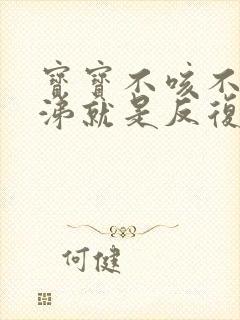 寶寶不咳不
涕就是反復
何健